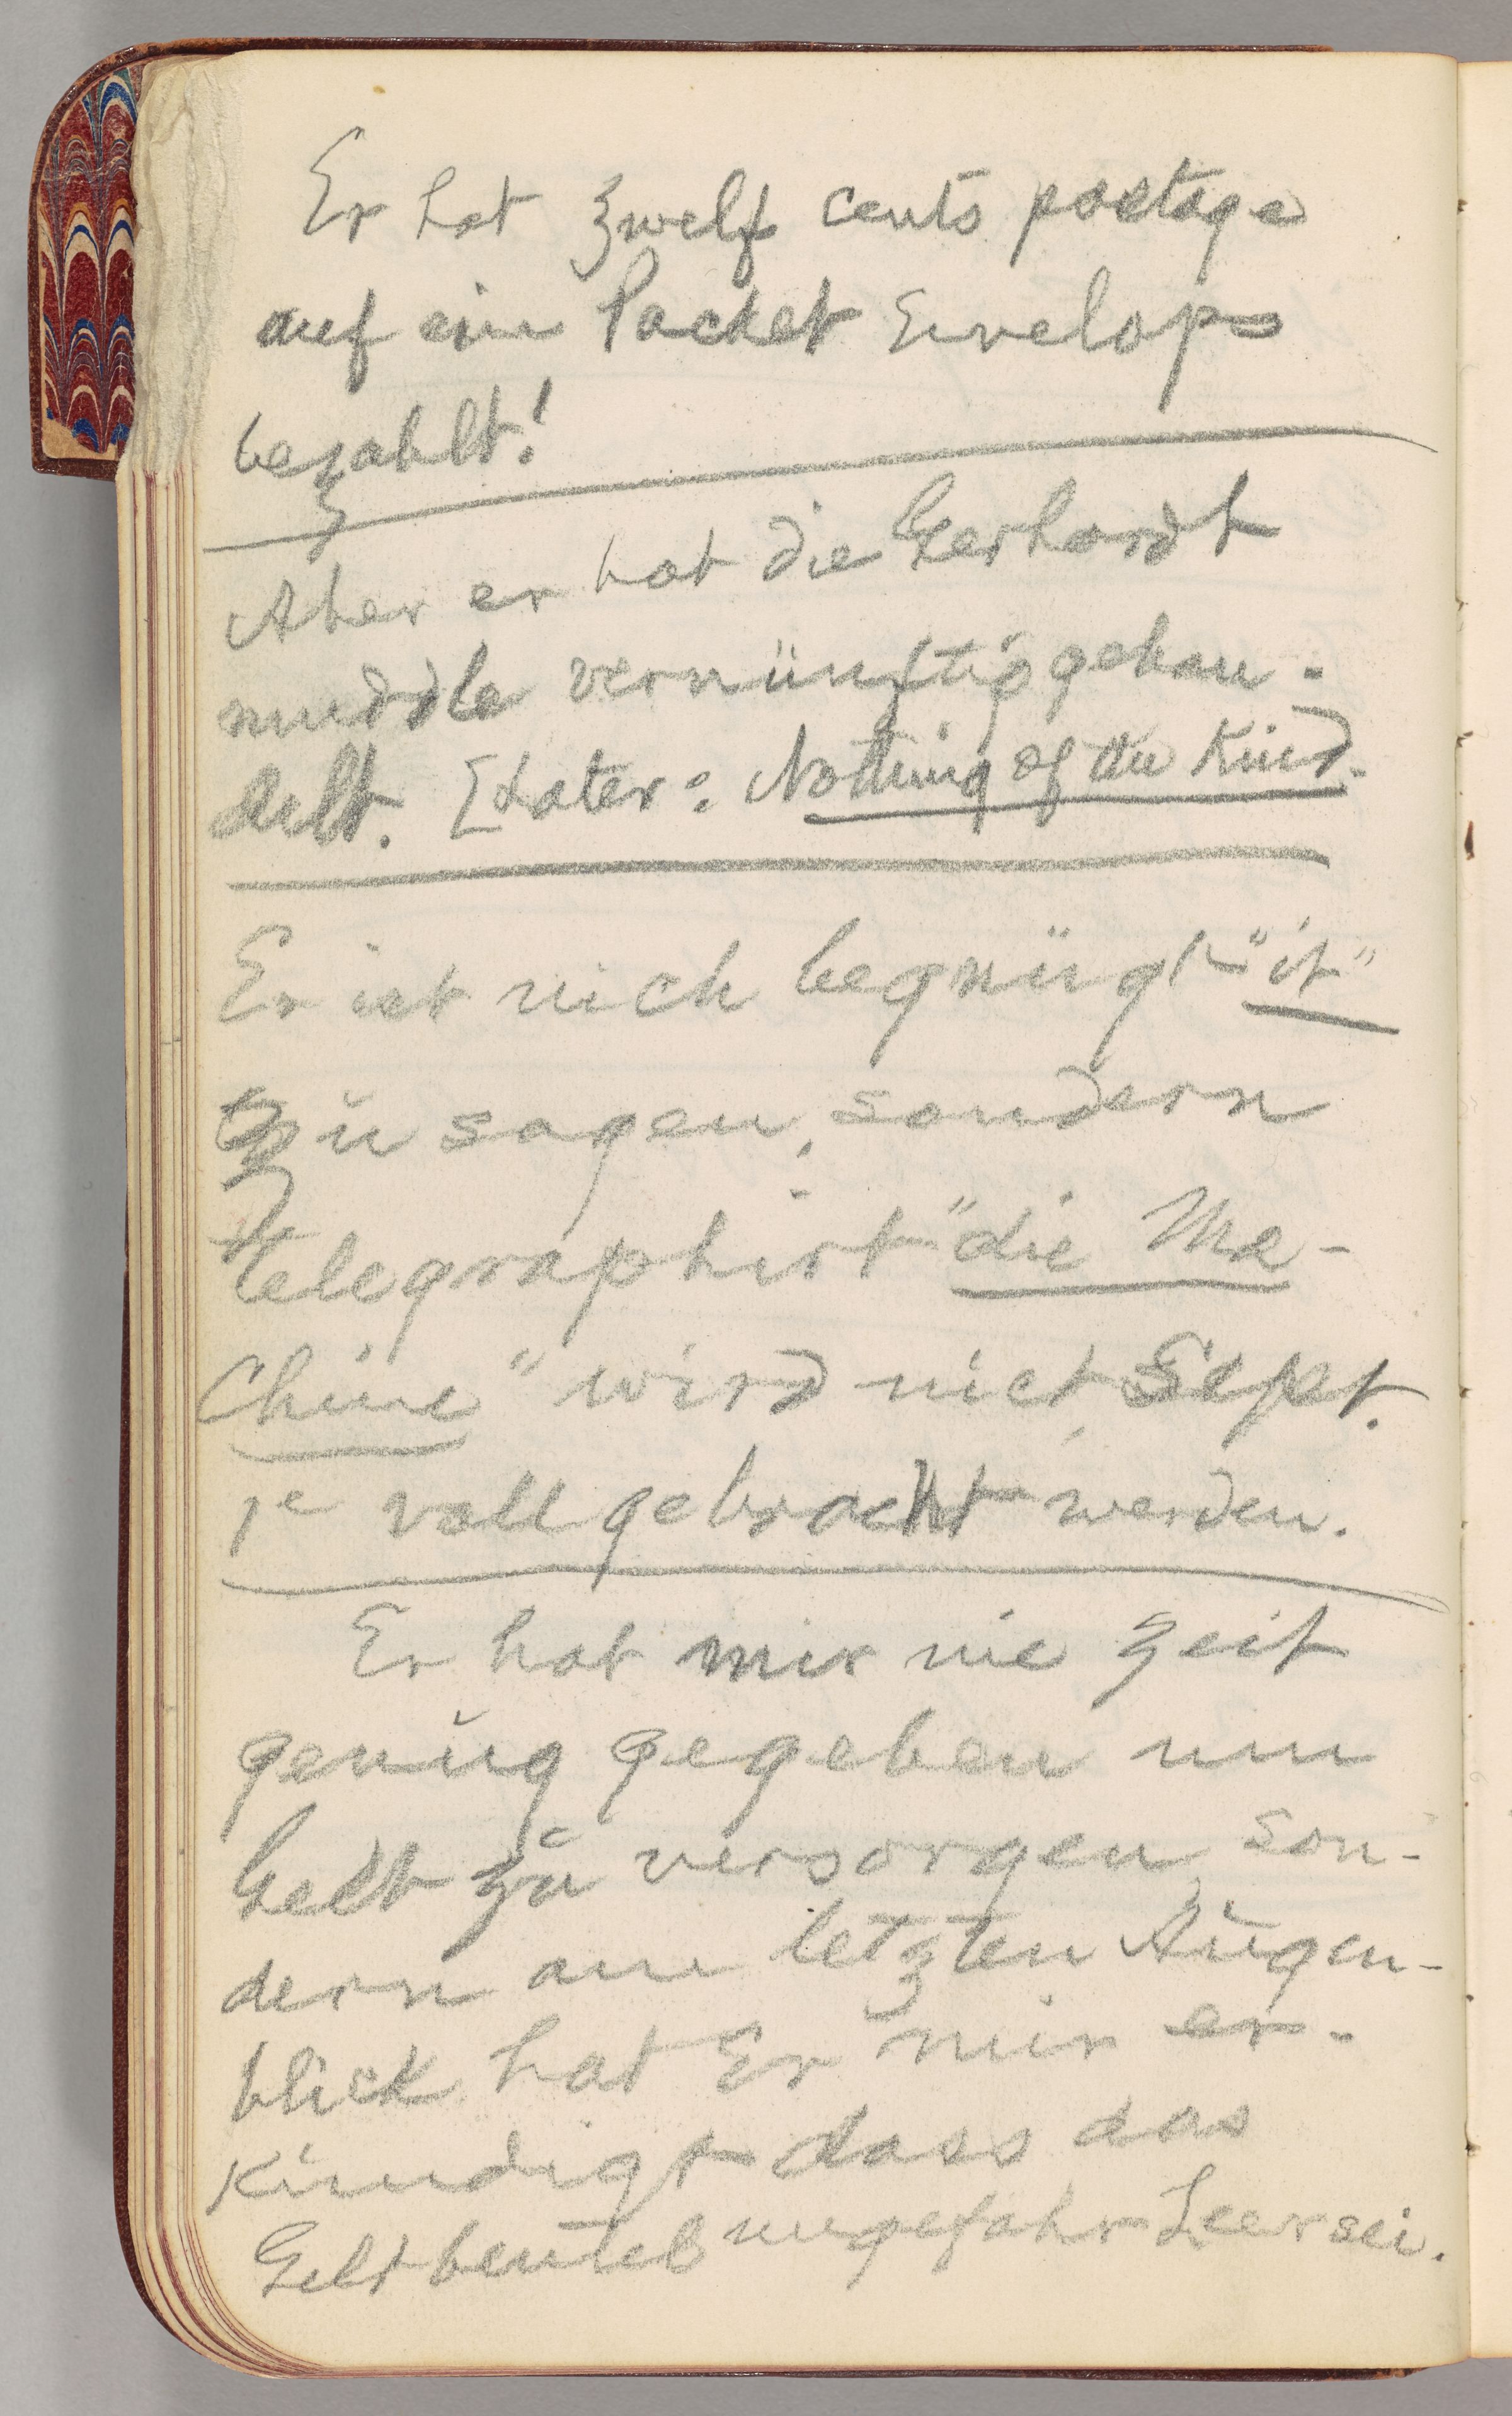 Er hat zwelf cents postage
auf ein Packet Envelops
bezahlt!
Aber er hat die Gerhardt
muddle vernünftig gehan-
delt. [Later: Nothing of the kind.
Er ist nich begnügt "it"
zu sagen, sondern
telegraphirt "die Ma-
chine" wird nict Sept.
1e vollgebracht werden.
Er hat mir nie Zeit
genug gegeben um
Gelt zu versorgen, son-
dern am letzten Augen-
blick hat Er mir er-
kündigt dass das
Geltbeutel ungefahr Leer sei.